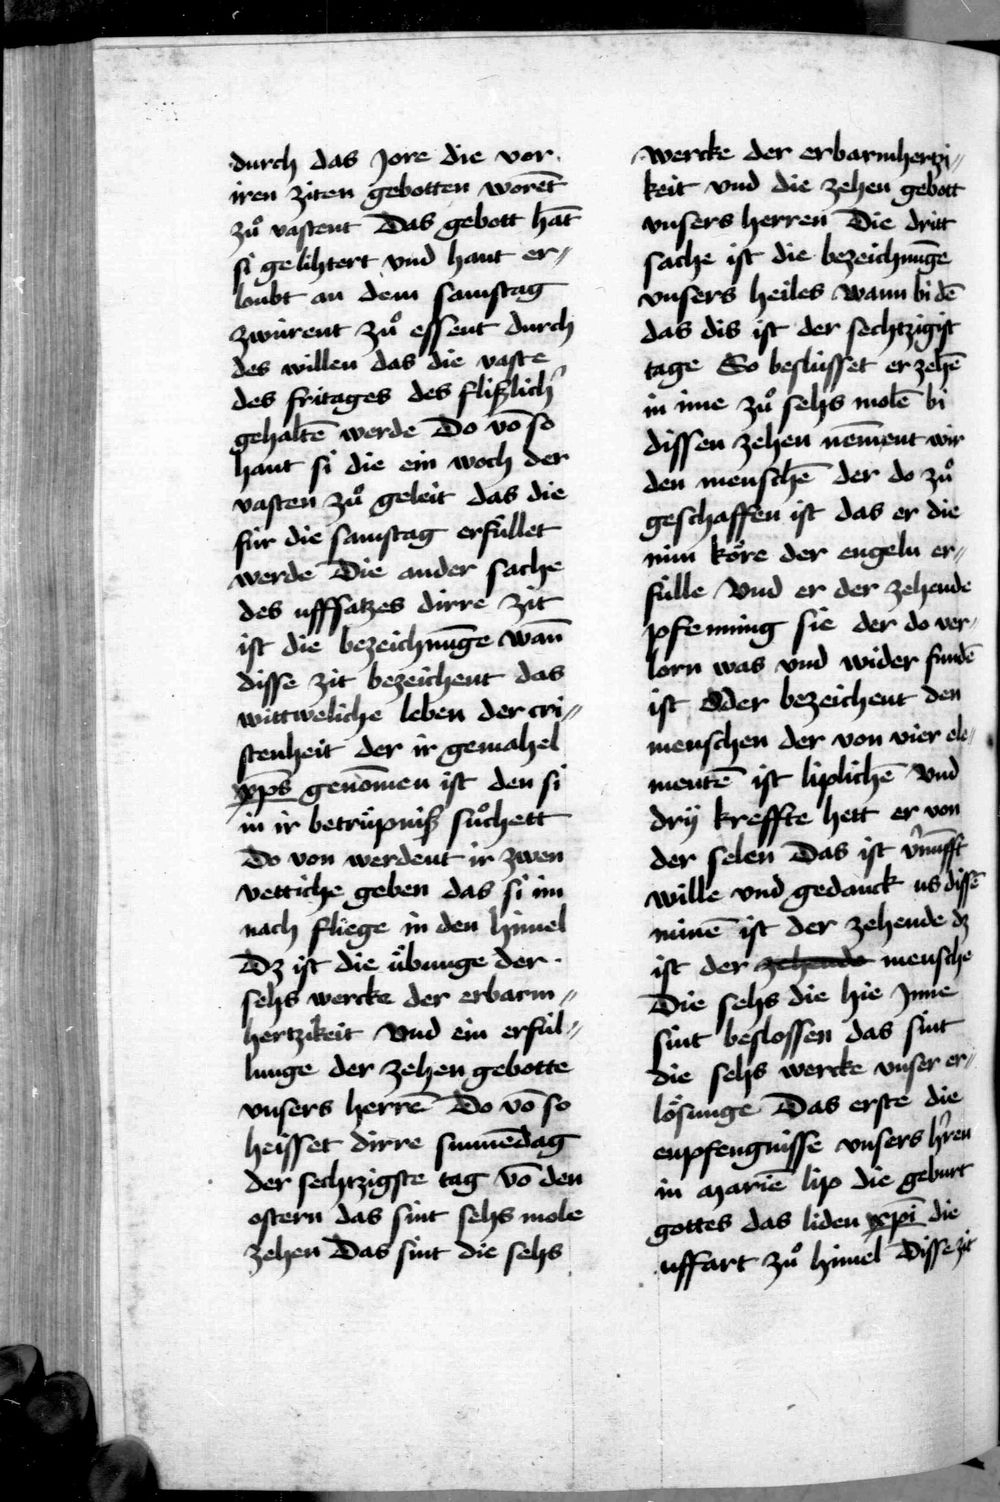 durch das Jore die vor
iren ziten gebotten worēt
zuͦ vastent Das gebott hāt
si gelihtert vnd hant er=
loubt an dem samstag
zwúrent zuͦ essent durch
des willen das die vaste
des fritages des flißlich͛
gehaltē werde Do vō so
hant si die ein woch der
vasten zuͦ geleit das die
fúr die samstag erfúllet
werde Die ander sache
des uffsatzes dirre zit
ist die bezeichnūge wañ
disse zit bezeichent das
wittweliche leben der cri=
stenheit der ir gemahel
xp̄s genōmen ist den si
in ir betrúpniß suͦchett
Do von werdent ir zwen
vettiche geben das si im
nach fliege in den himel
Dz ist die úbunge der
sehs wercke der erbarm=
hertzikeit Vnd ein erfúl=
lunge der zehen gebotte
vnsers herrē Do vō so
heisset dirre sunnēdag
der sechtzigste tag vō den
ostern das sint sehs mole
zehen Das sint die sehs
wercke der erbarmhertzi=
keit vnd die zehen gebott
vnsers herren Die dritt
sache ist die bezeichnūge
vnsers heiles Wann bi dē
das dis ist der sechtzigist
tage So beslússet er zehē
in ime zuͦ sehs molē bi
dissen zehen nēment wir
den menschē der do zuͦ
geschaffen ist das er die
nún kőre der engeln er=
fúlle Vnd er der zehende
pfenning sie der do ver=
lorn was vnd wider fundē
ist Oder bezeichent den
menschen der von vier ele=
mentē ist liplichē Vnd
drÿ kreffte hett er von
der selen Das ist v͛nūfft
wille vnd gedanck us dissē
núnē ist der zehende dz
ist der zehende mensche
Die sehs die hie Jnne
sint beslossen das sint
die sehs wercke vnser er=
lősunge Das erste die
enpfengnisse vnsers h͛ren
in Mariē lip die geburt
gottes das liden xp̄i die
uffart zuͦ himel Disse zit